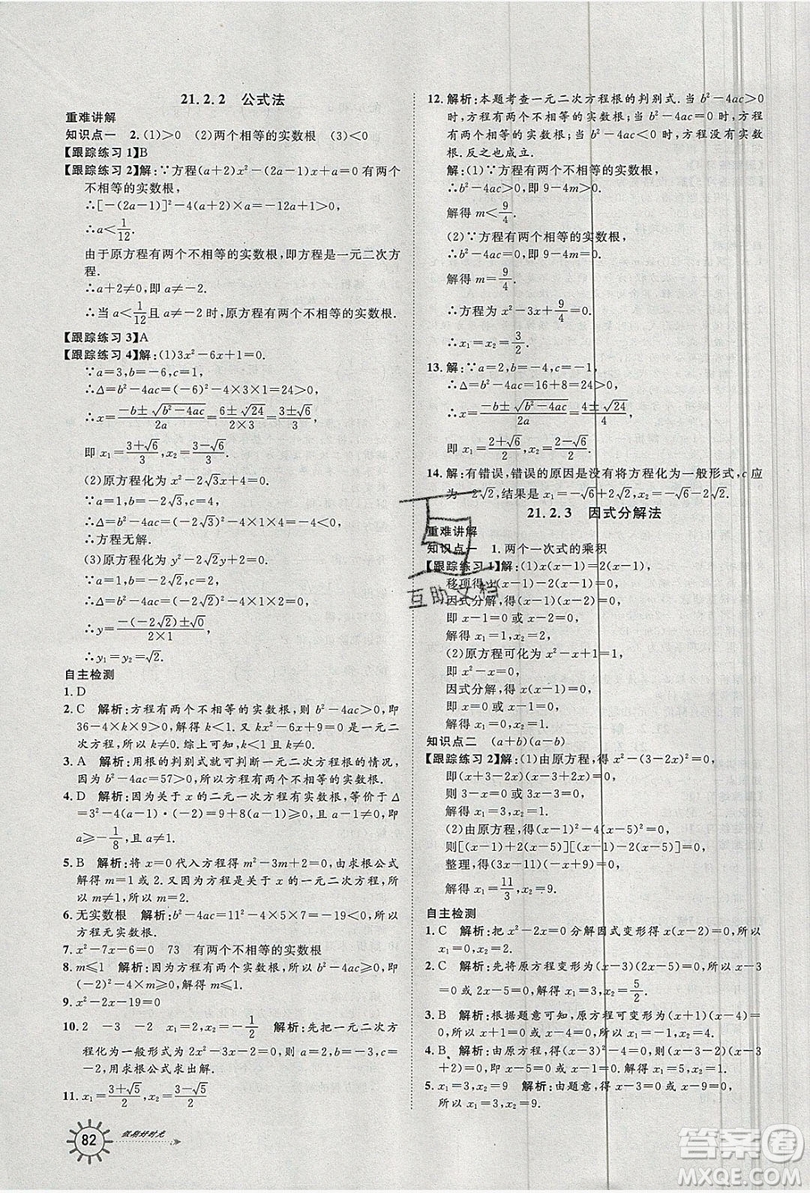 21.2.2 公式法
重难讲解
知识点一 2.(1)>0 (2)两个相等的实数根 (3)<0
【跟踪练习1】B
【跟踪练习2】解:∵方程(a+2)x²-(2a-1)x+a=0有两个
不相等的实数根
∴[-(2a-1)]²-4a(a+2)>0,
∴a<1/12.
由于原方程有两个不相等的实数根,即方程是一元二次方
程.
∴a+2≠0,即a≠-2.
∴当a<1/12且a≠-2时,原方程有两个不相等的实数根.
【跟踪练习3】A
【跟踪练习4】解:(1)3x²-6x+1=0.
∵a=3,b=-6,c=1,
∴Δ=b²-4ac=(-6)²-4×3×1=24>0,
∴x=(-b±√(b²-4ac))/2a=(6±√24)/(2×3)=(3±√6)/3,
即x₁=(3+√6)/3,x₂=(3-√6)/3.
(2)原方程化为x²-2√3x+4=0.
∵a=1,b=-2√3,c=4,
∴Δ=b²-4ac=(-2√3)²-4×1×4=-4<0,
∴方程无解.
(3)原方程化为y²-2√2y+2=0.
∵a=1,b=-2√2,c=2,
∴Δ=b²-4ac=(-2√2)²-4×1×2=0,
∴y=(-(-2√2)±√0)/(2×1)=√2,
∴y₁=y₂=√2.
自主检测
1. D
2. C 解析:方程有两个不相等的实数根,则b²-4ac>0,即
36-4×k×9>0,解得k<1.又kx²-6x+9=0是一元二
次方程,所以k≠0.综上可知,k<1且k≠0.
3. A 解析:用根的判别式就可判断一元二次方程根的情况.
因为b²-4ac=57>0,所以原方程有两个不相等的实数根.
4. D 解析:因为关于x的二元一次方程有实数根,等价于Δ
=3²-4(a-1)·(-2)=9+8(a-1)≥0,且a-1≠0,即
a≥-1/8,且a≠1.
5. B 解析:将x=0代入方程得m²-3m+2=0,由求根公式
解得m=1或m=2.又方程是关于x的一元二次方程,所
以m≠1,所以m=2.
6. 无实数根 解析:因为b²-4ac=11²-4×5×7=-19<0,所以
方程无实数根.
7. x²-7x-6=0 73 有两个不相等的实数根
8. m≤1 解析:因为方程有实数根,所以b²-4ac≥0,即
(-2)²-4m≥0,m≤1.
9. x²-2x=0
10. 2 -3 -2 x₁=2,x₂=-1/2 解析:先把一元二次方
程化为一般形式为2x²-3x-2=0,再确定a,b,c的值,最
后用求根公式求解.
11. x₁=(3+√5)/2,x₂=(3-√5)/2
82 假期好时光
12. 解析:本题考查一元二次方程根的判别式.当b²-4ac>0
时,方程有两个不相等的实数根;当b²-4ac=0时,方程
有两个相等的实数根;当b²-4ac<0时,方程无实数根.
反之也成立.
解:(1)∵方程有两个不相等的实数根,
∴b²-4ac>0,即9-4m>0.
解得m<9/4.
(2)∵方程有两个相等的实数根,
∴b²-4ac=0,即9-4m=0.
解得m=9/4.
∴方程为x²-3x+9/4=0.
∴x₁=x₂=3/2.
13. 解:∵a=2,b=-4,c=-1,
∴Δ=b²-4ac=16+8=24>0,
∴x=(-b±√(b²-4ac))/2a=(4±√24)/4,
即x₁=(2+√6)/2,x₂=(2-√6)/2.
14. 解:有错误,错误的原因是没有将方程化为一般形式,c应
为-2√2,结果是x₁=-√6+2√2,x₂=-√6-2√2.
21.2.3 因式分解法
重难讲解
知识点一 1.两个一次式的乘积
【跟踪练习1】解:(1)x(x-1)=2(x-1),
移项得x(x-1)-2(x-1)=0.
因式分解,得(x-1)(x-2)=0,
即x-1=0或x-2=0.
解得x₁=1,x₂=2.
(2)原方程可化为x²-x=0,
因式分解,得x(x-1)=0,
即x=0或x-1=0,
解得x₁=0,x₂=1.
知识点二 (a+b)(a-b)
【跟踪练习2】解:(1)由原方程,得x²-(3-2x)²=0,
则(x+3-2x)(x-3+2x)=0,
即3-x=0,3x-3=0,
解得x₁=3,x₂=1.
(2)由原方程,得4(x-3)²-(x-5)²=0,
则[2(x-3)+(x-5)][2(x-3)-(x-5)]=0,
整理,得(3x-11)(x-1)=0,
解得x₁=11/3,
自主检测
1. C 解析:把x²-2x=0分解因式变形得x(x-2)=0,所以
2. C 解析:先将原方程变形为(x-3)(2x-5)=0,所以
x-3=0或2x-5=0,解得x₁=3,x₂=5/2.
3. B 解析:根据题意可知,原方程变形为(x+1)(x-3)=0,
所以x+1=0或x-3=0,所以x₁=-1,x₂=3.
互助文档
答案圈
MXQE.COM